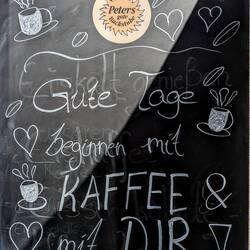 Peters
gute
Backstube
Gute Tage
beginnen mit
KAFFEE &
mit DIR